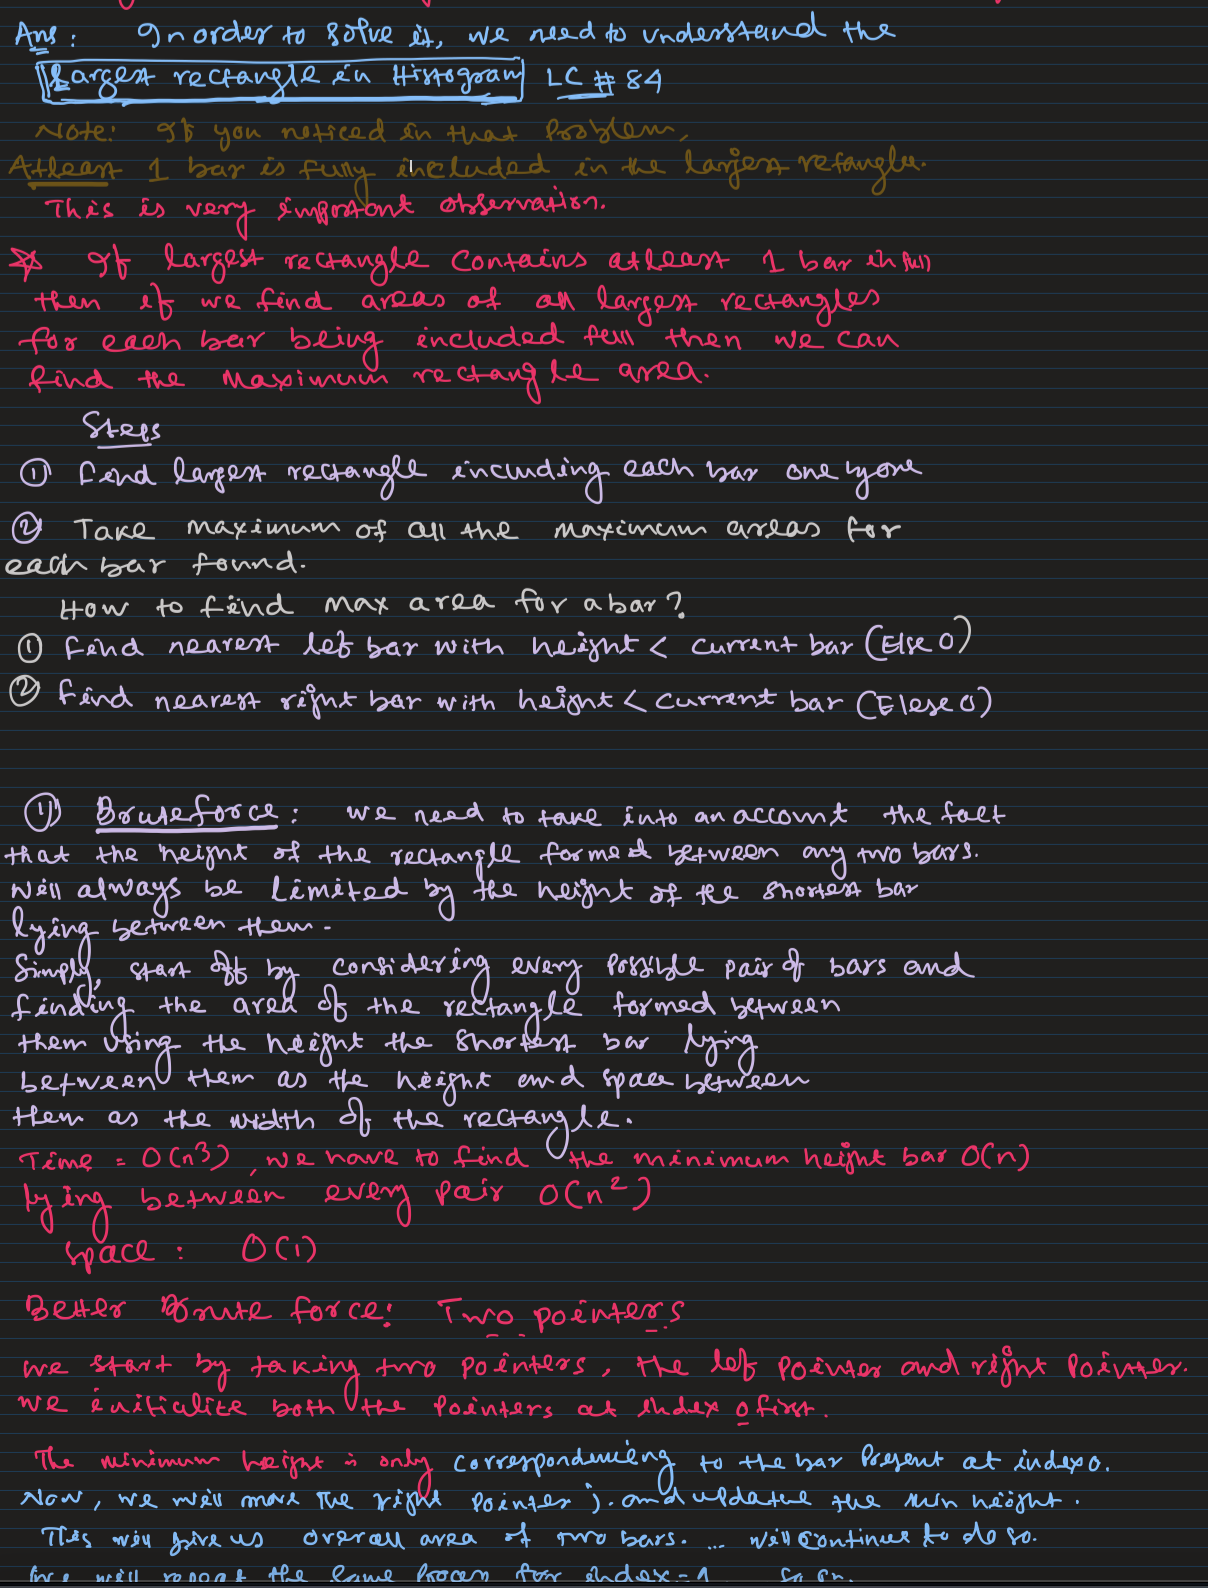 Ans: In order to solve it, we need to understand the
Largest rectangle in Histogram LC # 84
Note: If you noticed in that Problem,
Atleast 1 bar is fully included in the largest retangle.
This is very important observation.
If largest rectangle contains atleast 1 bar in full
then if we find areas of all largest rectangles
for each bar being included full then we can
find the maximum rectangle area.
Steps
① find largest rectangle including each bar one by one
② Take maximum of all the maximum areas for
each bar found.
How to find max area for a bar?
① Find nearest left bar with height < current bar (Else 0)
② Find nearest right bar with height < current bar (Elese 0)
① Bruteforce: we need to take into an account the fact
that the height of the rectangle formed between any two bars.
will always be limited by the height of the shortest bar
lying between them.
Simply, start off by considering every possible pair of bars and
finding the area of the rectangle formed between
them using the height the shortest bar lying
between them as the height and space between
them as the width of the rectangle.
Time = O(n³), we have to find the minimum height bar O(n)
lying between every pair O(n²)
Space: O(1)
Better Brute force: Two pointers
we start by taking two pointers, the left pointer and right Pointer.
we initialize both the pointers at index 0 first.
The minimum height is only correspondening to the bar Present at index 0.
Now, we will move the right pointer j. and update the min height.
This will give us overall area of two bars. ... will continue to do so.
we will repeat the same process for index=1 so on.